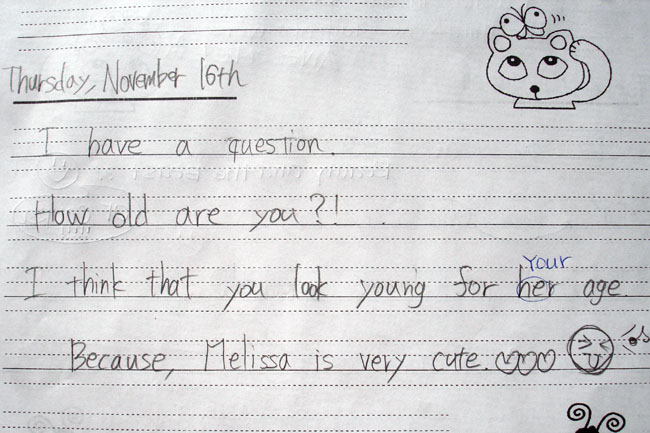 Thursday, November 16th
I have a question.
How old are you?!
Your
I think that you look young for her age.
Because, Melissa is very cute.